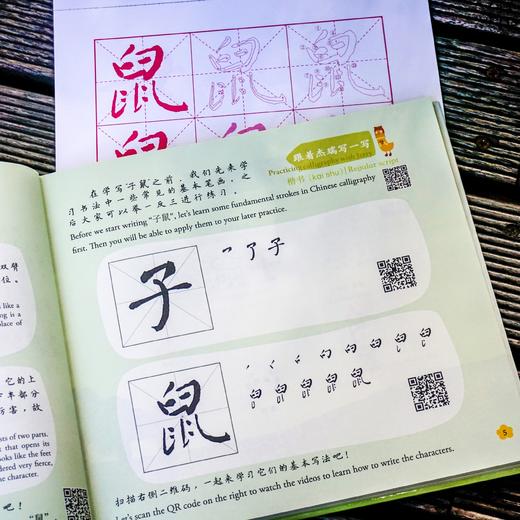 鼠 鼠 鼠
跟着杰瑞写一写
Practicing calligraphy with Jerry
楷书 (kǎi shū) | Regular script
在学写子鼠之前，我们先来学
习书法中一些常见的基本笔画，之
后大家可以举一反三进行练习。
Before we start writing "子鼠", let's learn some fundamental strokes in Chinese calligraphy
first. Then you will be able to apply them to your later practice.
子
了 子
鼠
扫描右侧二维码，一起来学习它们的基本写法吧！
Let's scan the QR code on the right to watch the videos to learn how to write the characters.
5
双臂
位。
like a
ing is a
place of
它的上
半部分
厉害，故
sts of two parts.
t that opens its
ooks like the feet
dered very fierce,
e character.
"鼠"，